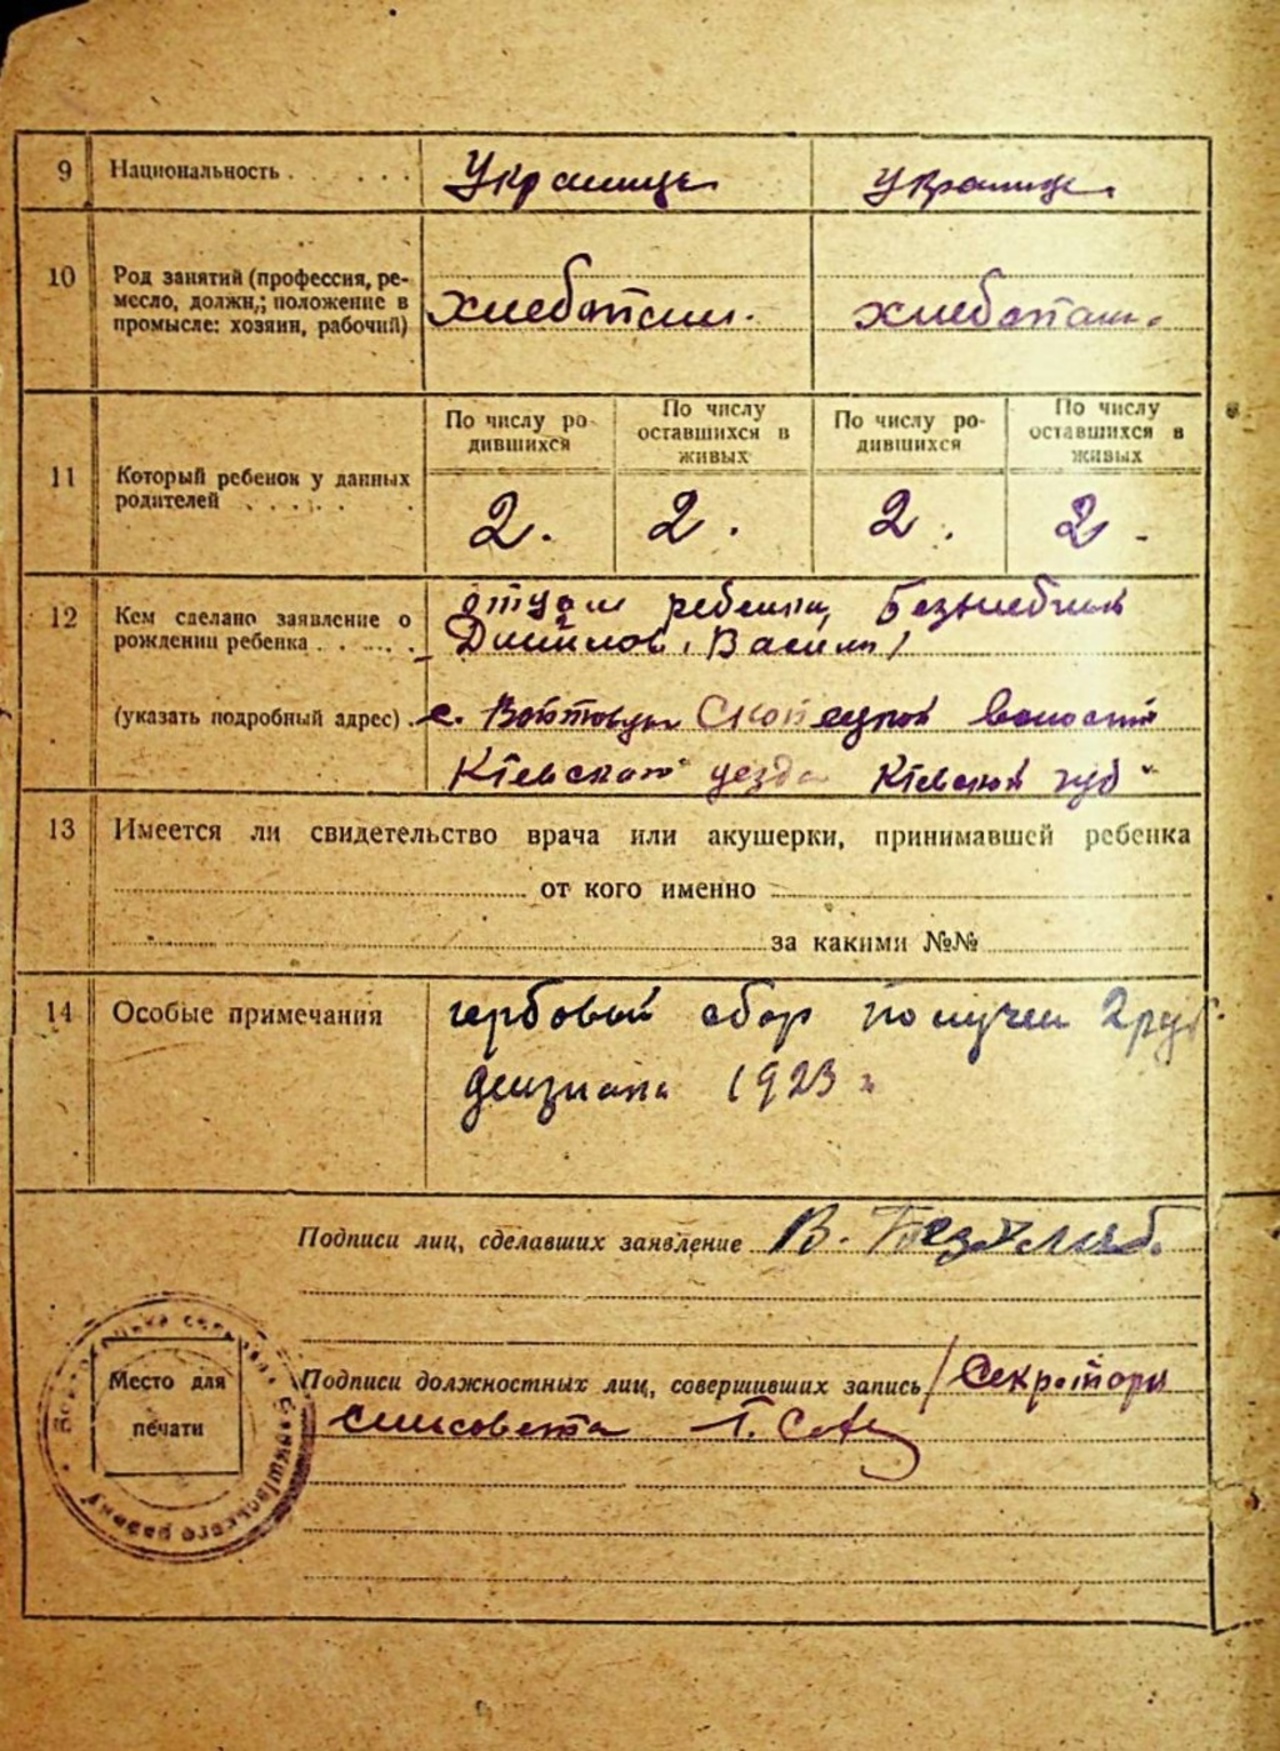 9 Национальность . . . . . . Украинцы Украинцы.
10 Род занятий (профессия, ре-
месло, должн,; положение в
промысле: хозяин, рабочий)
хлебопаш. хлебопаш.
По числу ро-
дившихся
По числу
оставшихся в
живых
По числу ро-
дившихся
По числу
оставшихся в
живых
11 Который ребенок у данных
родителей . . . . . .
2. 2. 2. 2.
12 Кем сделано заявление о
рождении ребенка . . . . . .
отцом ребенка,
Васили
(указать подробный адрес) . с. Войтовцы волости
Кіевскаго уезда Кіевской губ
13 Имеется ли свидетельство врача или акушерки, принимавшей ребенка
от кого именно
за какими №№
14 Особые примечания гербовый сбор получен 2 руб.
дензнак 1923 г
Подписи лиц, сделавших заявление В.
Место для
печати
Подписи должностных лиц, совершивших запись / Секретарь
сельсовета